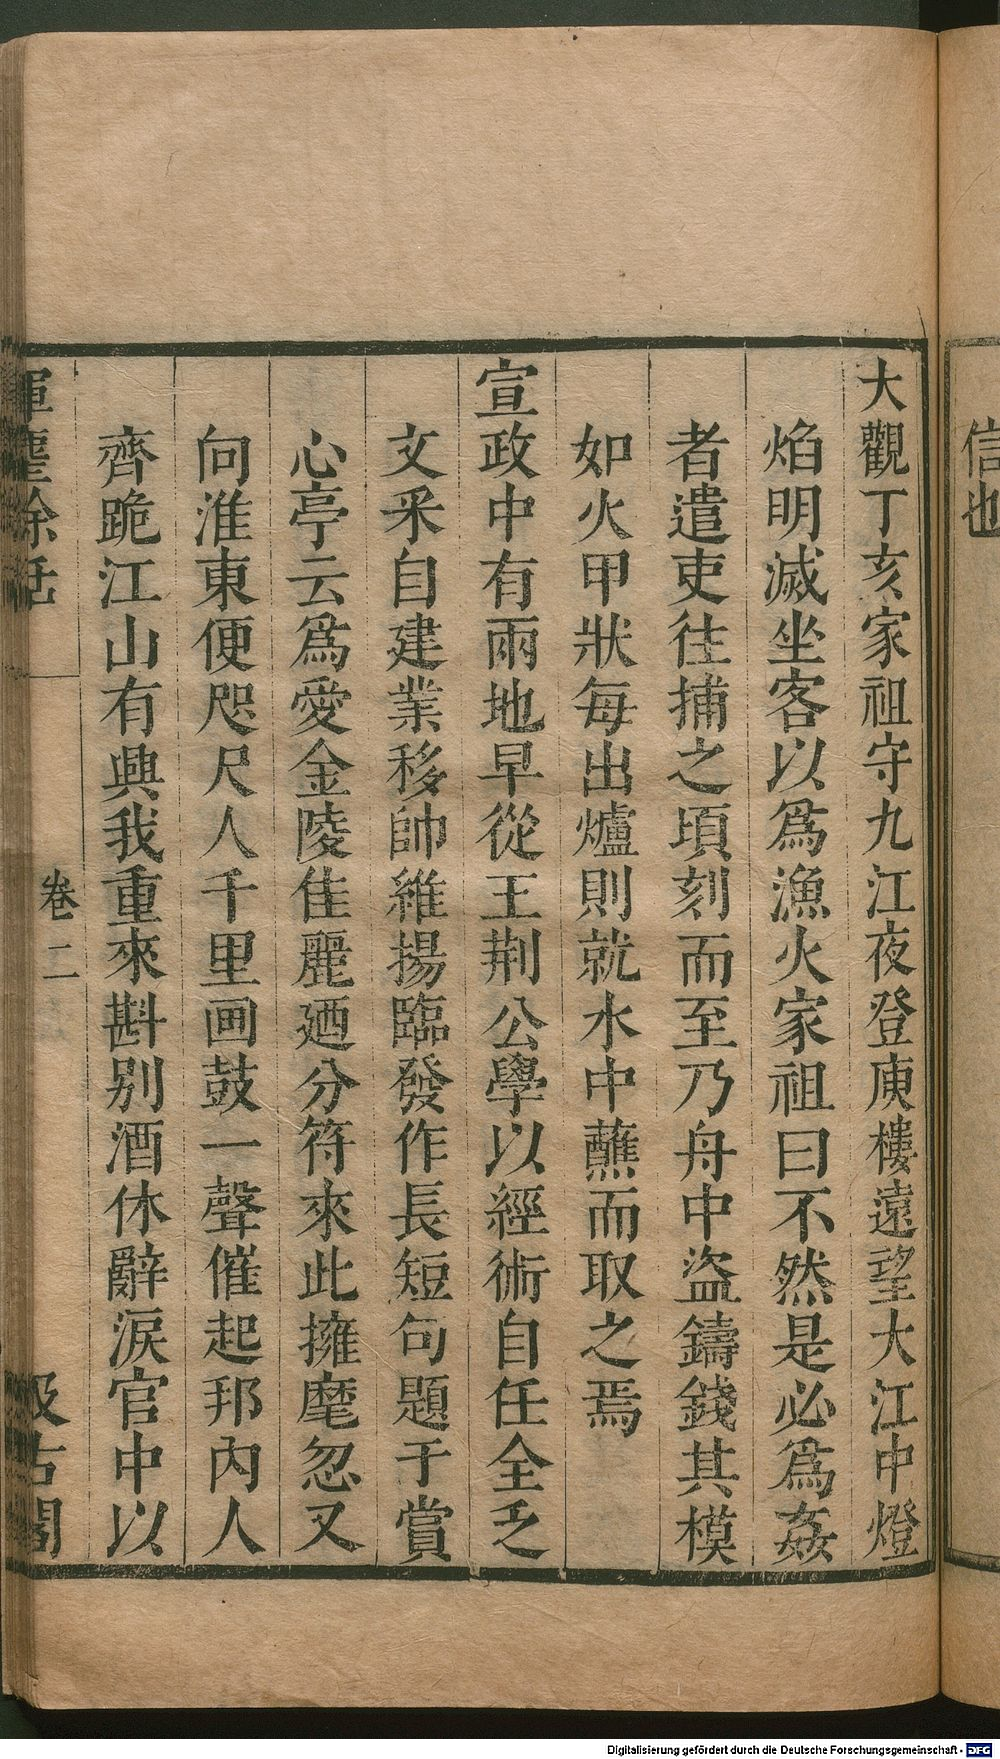 信也
大觀丁亥家祖守九江夜登庾樓遠望大江中燈
焰明滅坐客以爲漁火家祖曰不然是必爲姦
者遣吏往捕之頃刻而至乃舟中盜鑄錢其模
如火甲狀每出爐則就水中蘸而取之焉
宣政中有兩地早從王荆公學以經術自任全乏
文采自建業移帥維揚臨發作長短句題于賞
心亭云爲愛金陵佳麗廼分符來此擁麾忽又
向淮東便咫尺人千里画鼓一聲催起邦內人
齊跪江山有興我重來斟别酒休辭淚官中以
揮麈餘話
卷二
汲古閣
Digitalisierung gefördert durch die Deutsche Forschungsgemeinschaft - DFG